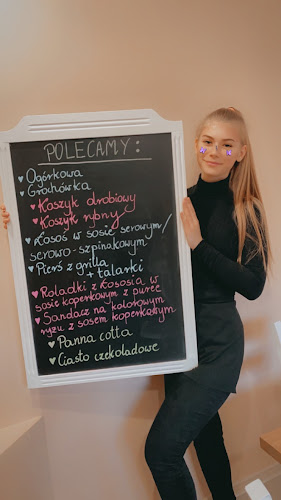 POLECAMY:
♥ Ogórkowa
♥ Grochówka
♥ Koszyk drobiowy
♥ Koszyk rybny
♥ Łosoś w sosie serowym/
serowo-szpinakowym
♥ Pierś z grilla
+ talarki
♥ Roladki z łososia w
sosie koperkowym z puree
♥ Sandacz na kolorowym
ryżu z sosem koperkowym
♥ Panna cotta
♥ Ciasto czekoladowe